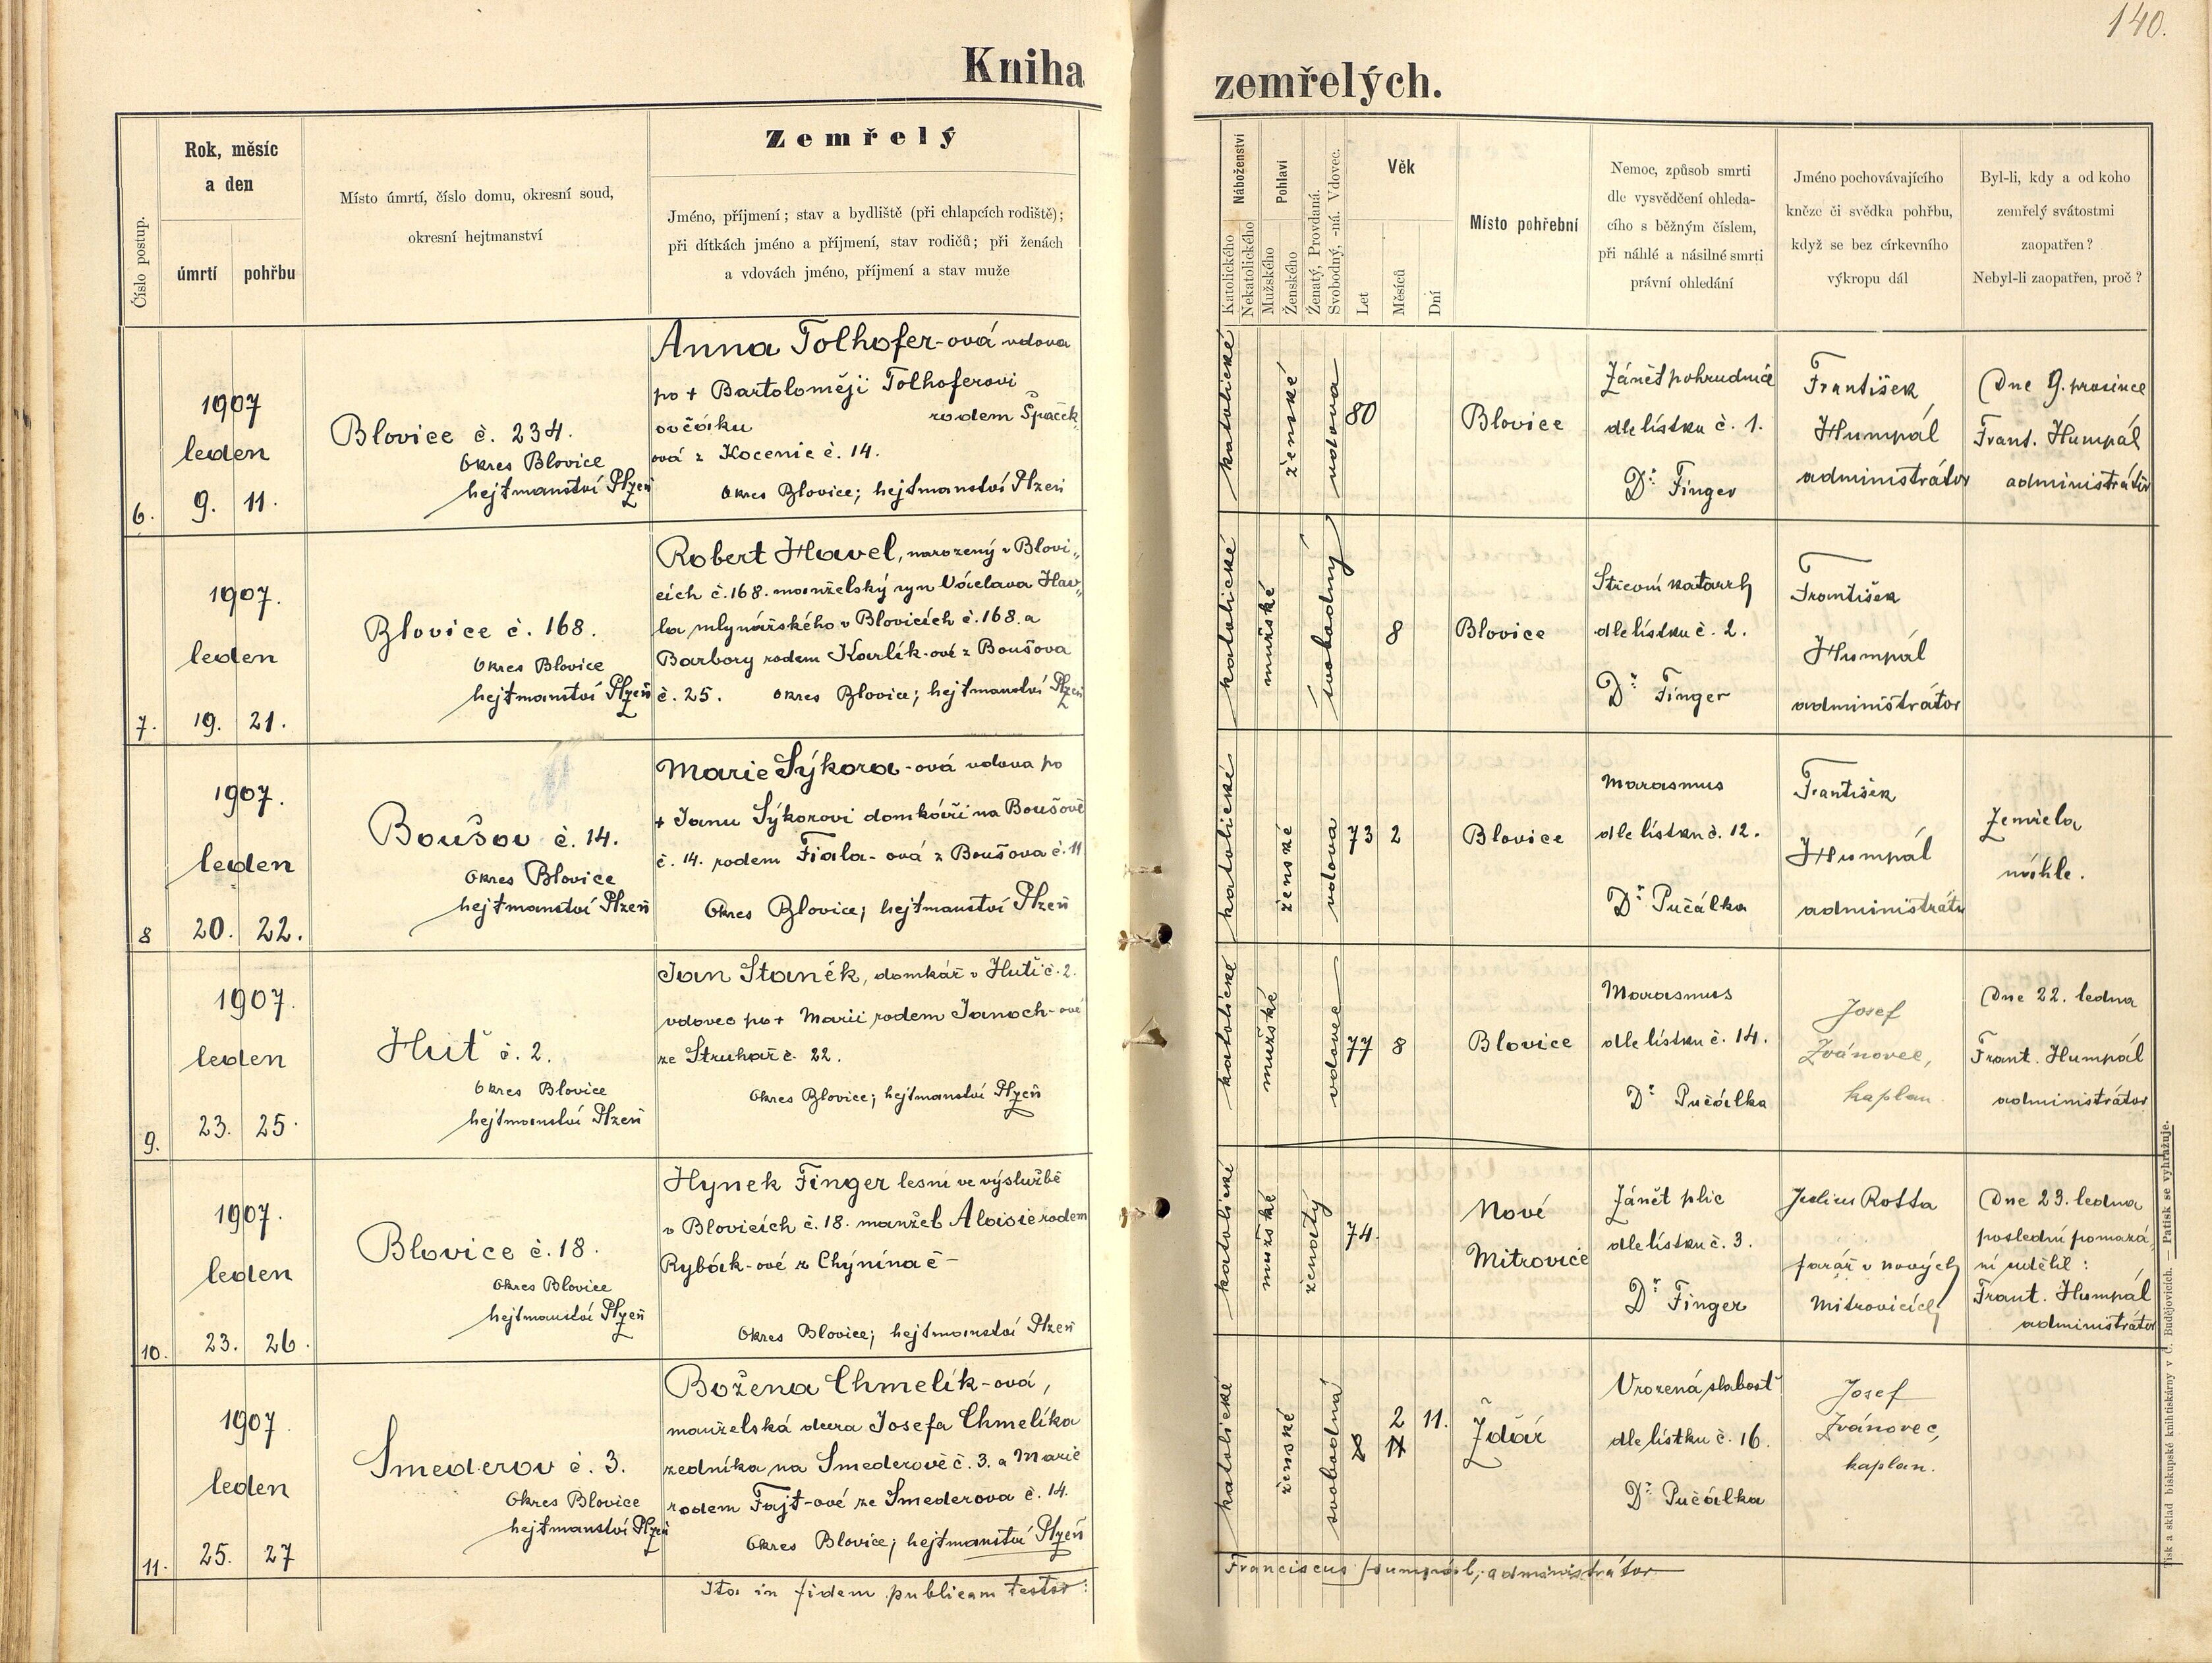 140.
Kniha zemřelých.
Číslo postup.
Rok, měsíc
a den
úmrtí
pohřbu
Místo úmrtí, číslo domu, okresní soud,
okresní hejtmanství
Zemřelý
Jméno, příjmení; stav a bydliště (při chlapcích rodiště);
při dítkách jméno a příjmení, stav rodičů; při ženách
a vdovách jméno, příjmení a stav muže
Náboženství
Katolického
Nekatolického
Pohlaví
Mužského
Ženského
Ženatý, Provdaná.
Svobodný, -ná. Vdovec.
Věk
Let
Měsíců
Dní
Místo pohřební
Nemoc, způsob smrti
dle vysvědčení ohleda-
cího s běžným číslem,
při náhlé a násilné smrti
právní ohledání
Jméno pochovávajícího
kněze či svědka pohřbu,
když se bez církevního
výkropu dál
Byl-li, kdy a od koho
zemřelý svátostmi
zaopatřen?
Nebyl-li zaopatřen, proč?
6.
1907
leden
9. 11.
Blovice č. 234.
Okres Blovice
hejtmanství Plzeň
Anna Tolhofer-ová vdova
po + Bartoloměji Tolhoferovi
ovčáku rodem Špaček-
ová z Kocenic č. 14.
Okres Blovice; hejtmanství Plzeň
katolické
ženské
vdova
80
Blovice
Zánět pohrudnice
dle lístku č. 1.
Dr Finger
František
Humpál
administrátor
Dne 9. prosince
Frant. Humpál
administrátor
7.
1907.
leden
19. 21.
Blovice č. 168.
Okres Blovice
hejtmanství Plzeň
Robert Havel, narozený v Blovi„
cích č. 168. manželský syn Václava Hav„
la mlynářského v Blovicích č. 168. a
Barbory rodem Karlík-ové z Boušova
č. 25. Okres Blovice; hejtmanství Plzeň
katolické
mužské
svobodný
8
Blovice
Střevní katarrh
dle lístku č. 2.
Dr Finger
František
Humpál
administrátor
8
1907.
leden
20. 22.
Boušov č. 14.
Okres Blovice
hejtmanství Plzeň
Marie Sýkora-ová vdova po
+ Janu Sýkorovi domkáři na Boušově
č. 14. rodem Fiala-ová z Boušova č. 11
Okres Blovice; hejtmanství Plzeň
katolické
ženské
vdova
73 2
Blovice
Marasmus
dle lístku č. 12.
Dr Pučálka
František
Humpál
administrátor
Zemřela
náhle.
9.
1907.
leden
23. 25.
Huť č. 2.
Okres Blovice
hejtmanství Plzeň
Jan Staněk, domkář v Huti č. 2.
vdovec po + Marii rodem Janoch-ové
ze Struhař č. 22.
Okres Blovice; hejtmanství Plzeň
katolické
mužské
vdovec
77 8
Blovice
Marasmus
dle lístku č. 14.
Dr Pučálka
Josef
Zvánovec,
kaplan.
Dne 22. ledna
Frant. Humpál
administrátor
10.
1907.
leden
23. 26.
Blovice č. 18.
Okres Blovice
hejtmanství Plzeň
Hynek Finger lesní ve výslužbě
v Blovicích č. 18. manžel Aloisie rodem
Rybák-ové z Chýnína č -
Okres Blovice; hejtmanství Plzeň
katolické
mužské
ženatý
74.
Nové
Mitrovice
Zánět plic
dle lístku č. 3.
Dr Finger
Julius Rotta
farář v nových
Mitrovicích
Dne 23. ledna
poslední pomazá„
ní udělil:
Frant. Humpál
administrátor
11.
1907.
leden
25. 27
Smederov č. 3.
Okres Blovice
hejtmanství Plzeň
Božena Chmelík-ová,
manželská dcera Josefa Chmelíka
zedníka na Smederově č. 3. a Marie
rodem Fajt-ové ze Smederova č. 14.
Okres Blovice; hejtmanství Plzeň
katolické
ženské
svobodná
2 11.
Ždár
Vrozená slabost
dle lístku č. 16.
Dr Pučálka
Josef
Zvánovec,
kaplan.
Ita in fidem publicam testor:
Franciscus Humpál, administrátor
Tisk a sklad biskupské knihtiskárny v Č. Budějovicích. — Patisk se vyhražuje.